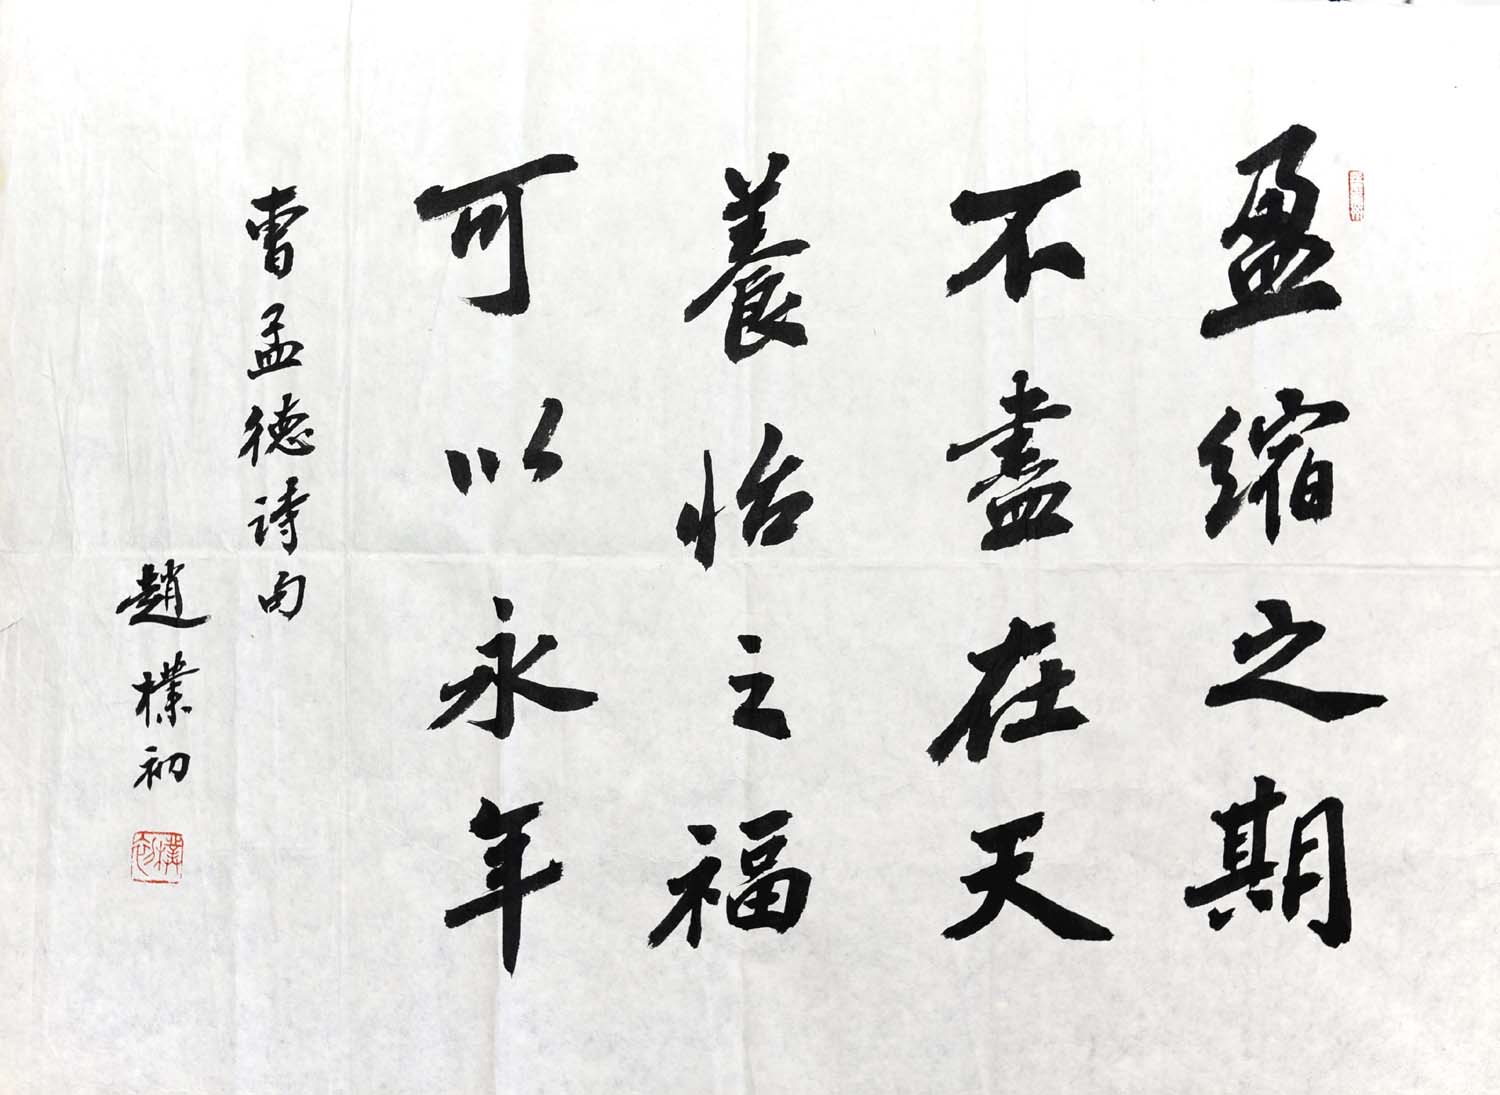 盈縮之期
不盡在天
養怡之福
可以永年
曹孟德詩句
趙樸初
樸初